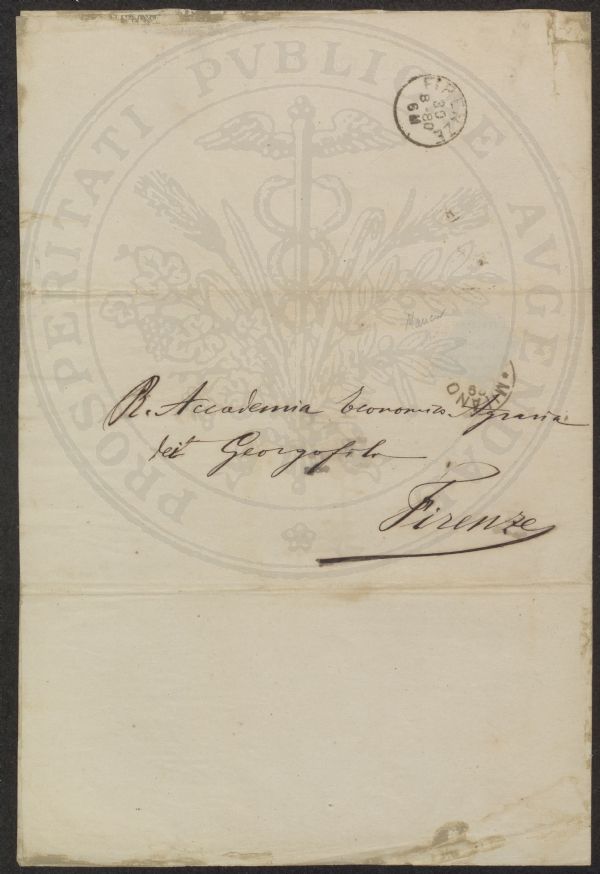 PROSPERITATI PVBLICAE AVGENDAE
FIRENZE
30
8-80
6M
MILANO
R. Accademia Economico Agraria
dei Georgofili
Firenze